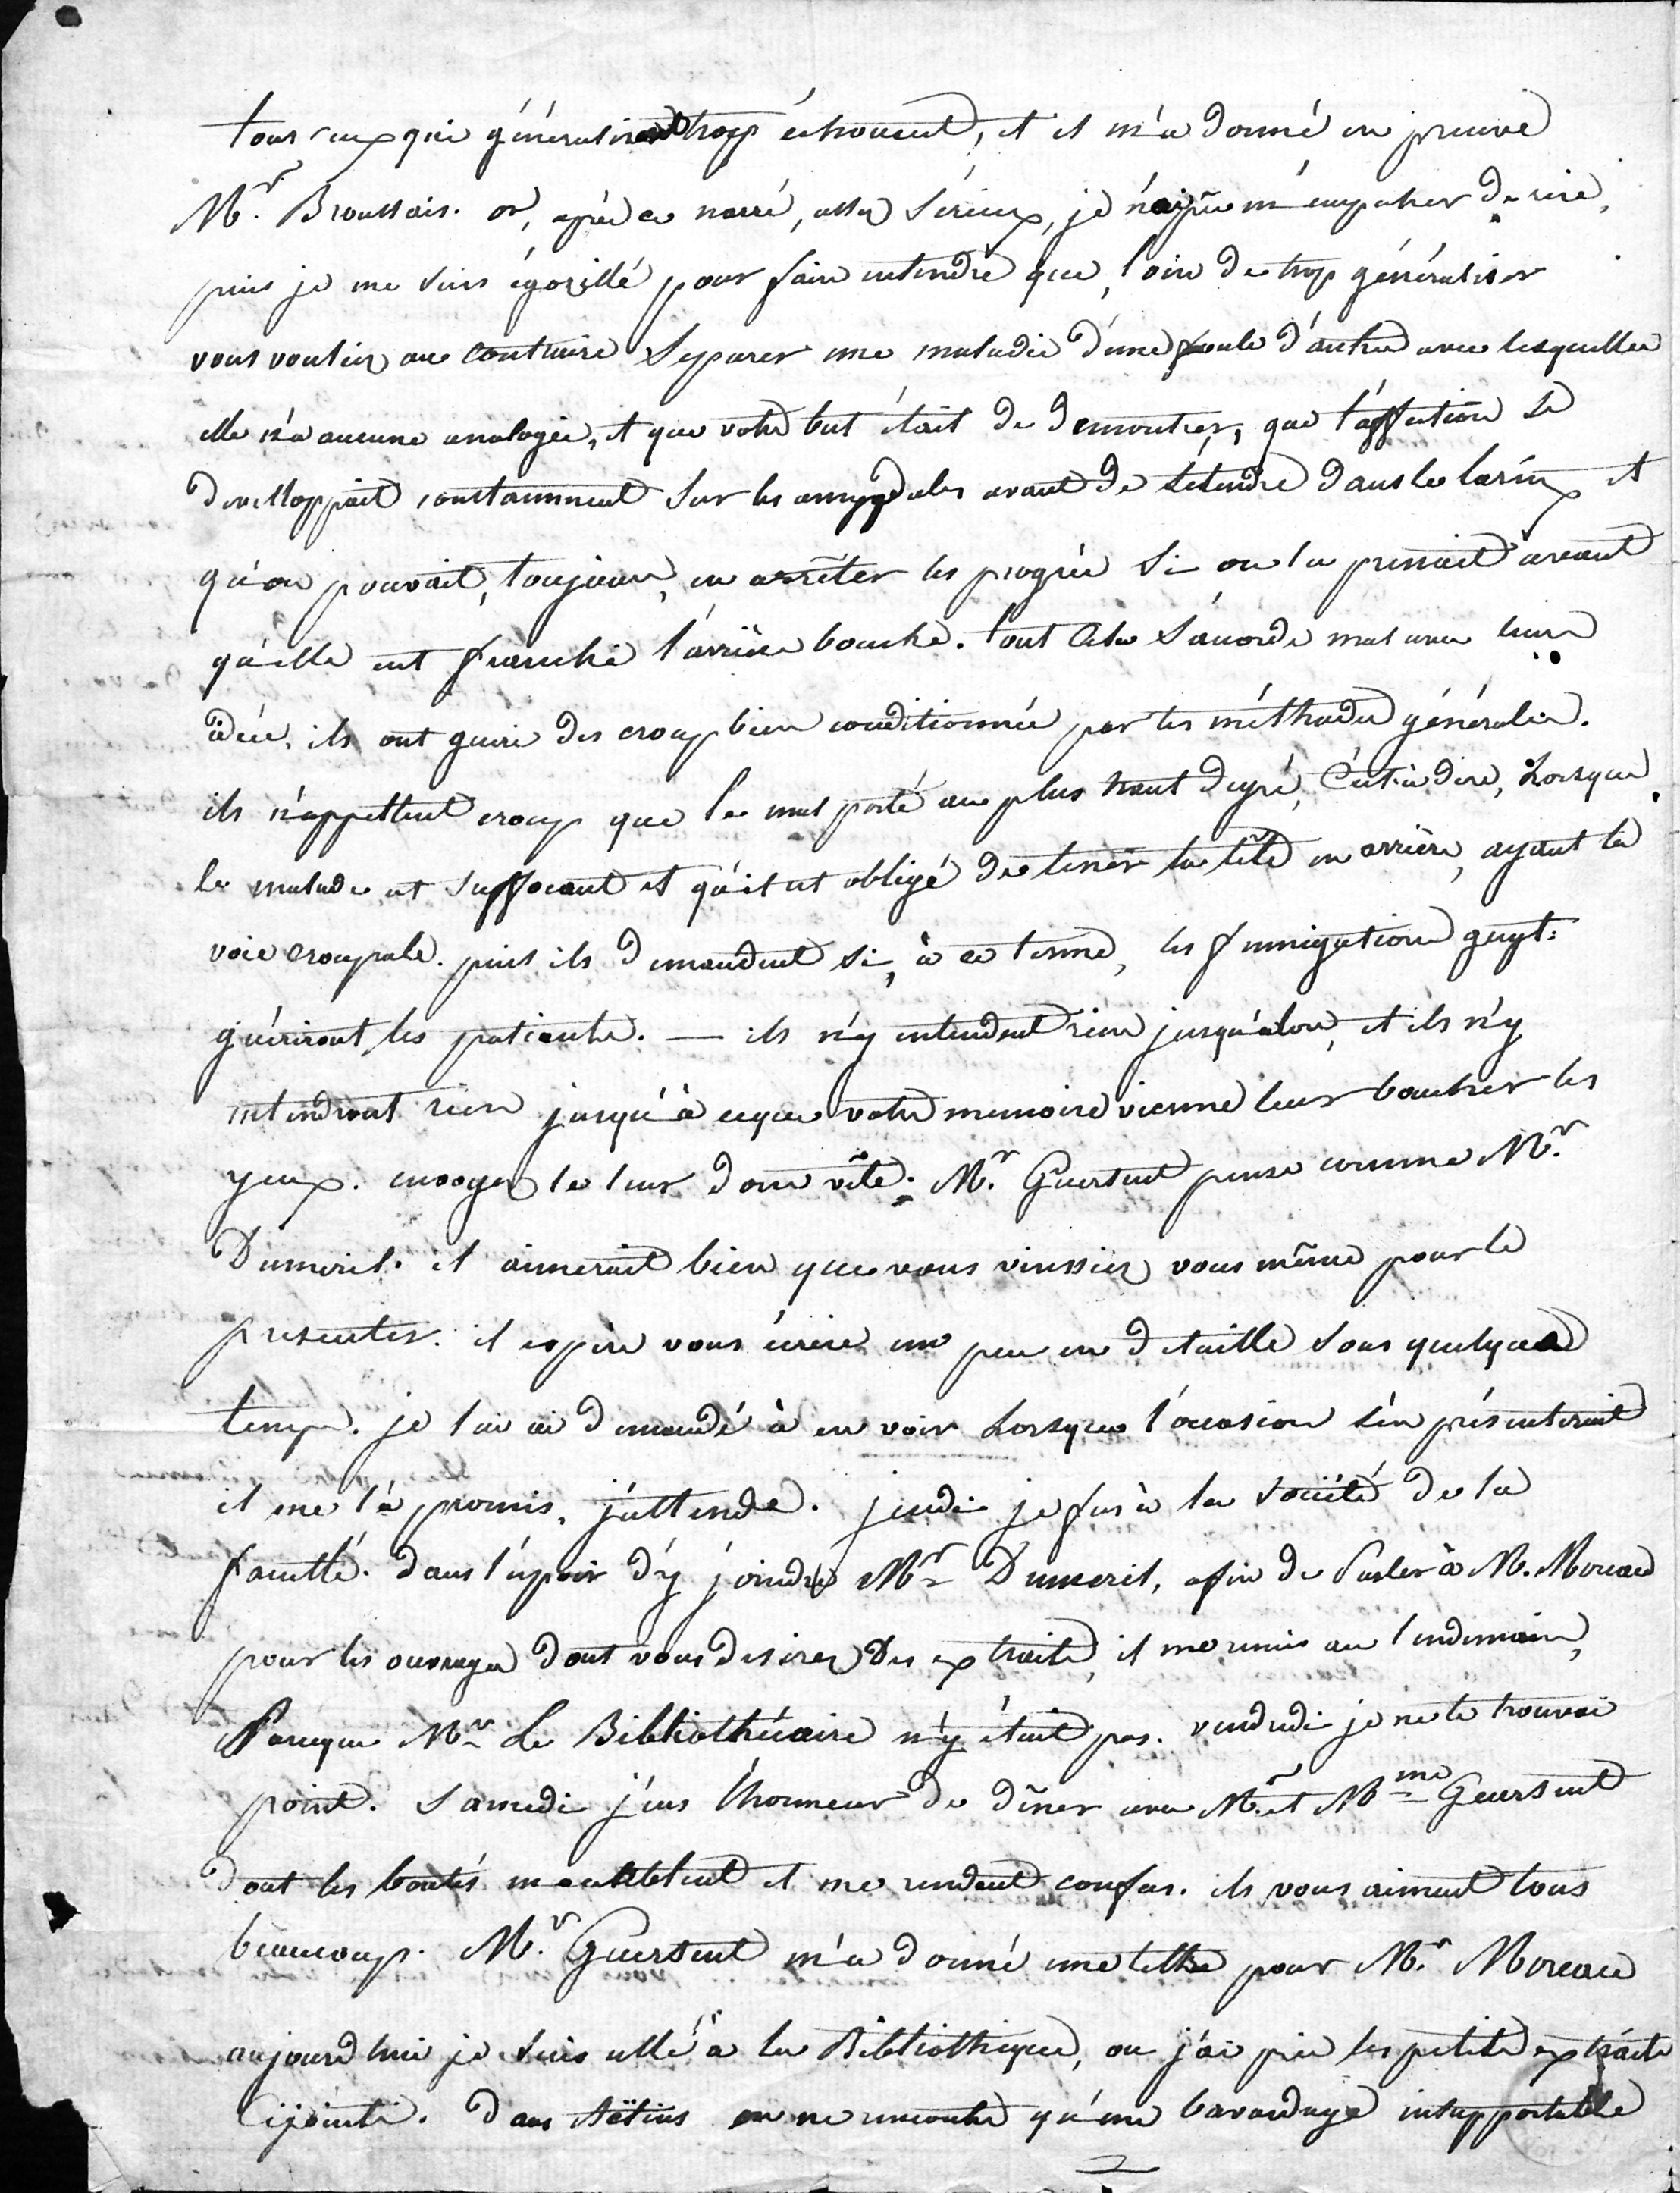 tous ceux qui généralisent trop échouent, et il m'a donné en preuve
Mr. Broussais. or, après ce narré, assez sérieux, je n'ai pu m'empecher de rire,
puis je me suis égozillé pour faire entendre que, loin de trop généraliser
vous vouliez au contraire separer une maladie d'une foule d'autres avec lesquelles
elle n'a aucune analogie, et que votre but était de demontrer, que l'affection se
developpait constamment sur les amygdales avant de s'étendre dans le larinx et
qu'on pouvait, toujours, en arrêter les progrès si on la prenait avant
qu'elle eut franchi l'arrière bouche. tout cela s'acorde mal avec leurs
idées. ils ont gueri des croup bien conditionnés par les méthodes générales.
ils n'appellent croup que le mal porté au plus haut degré, C'est à dire, Lorsque
le malade est suffocant et qu'il est obligé de tenir la tête en arrière, ayant la
voie croupale. puis ils demandent si, à ce terme, les fumigations guyt:
guériront les patients. — ils n'y entendent rien jusqu'alors, et ils n'y
entendront rien jusqu'à ce que votre memoire vienne leur boucher les
yeux. envoyez le leur donc vîte. Mr. Guersent pense comme Mr.
Dumeril. il aimerait bien que vous vinssiez vous même pour le
presenter. il espère vous écrire un peu en détaille sous quelques
temps. je lui ai demandé à en voir Lorsque l'ocasion s'en présenterait
il me l'a promis, j'attends. jeudi je fus à la société de la
faculté. dans l'espoir d'y joindre Mr Dumeril, afin de Parler à M. Moreau
pour les ouvrages dont vous desirez Des extraits, il me remis au lendemain,
Parceque Mr Le Bibliothécaire n'y était pas. vendredi je ne le trouvai
point. samedi j'eus l'honneur de dîner avec Mr. et Mme Guersent
dont les bontés m'accablent et me rendent confus. ils vous aiment tous
beaucoup. Mr. Guersent m'a donné une lettre pour Mr. Moreau
aujourd'hui je suis allé à la Bibliothèque, ou j'ai pris les petits extraits
Cijoints. dans Aëtius on ne rencontre qu'un bavardage insupportable
2